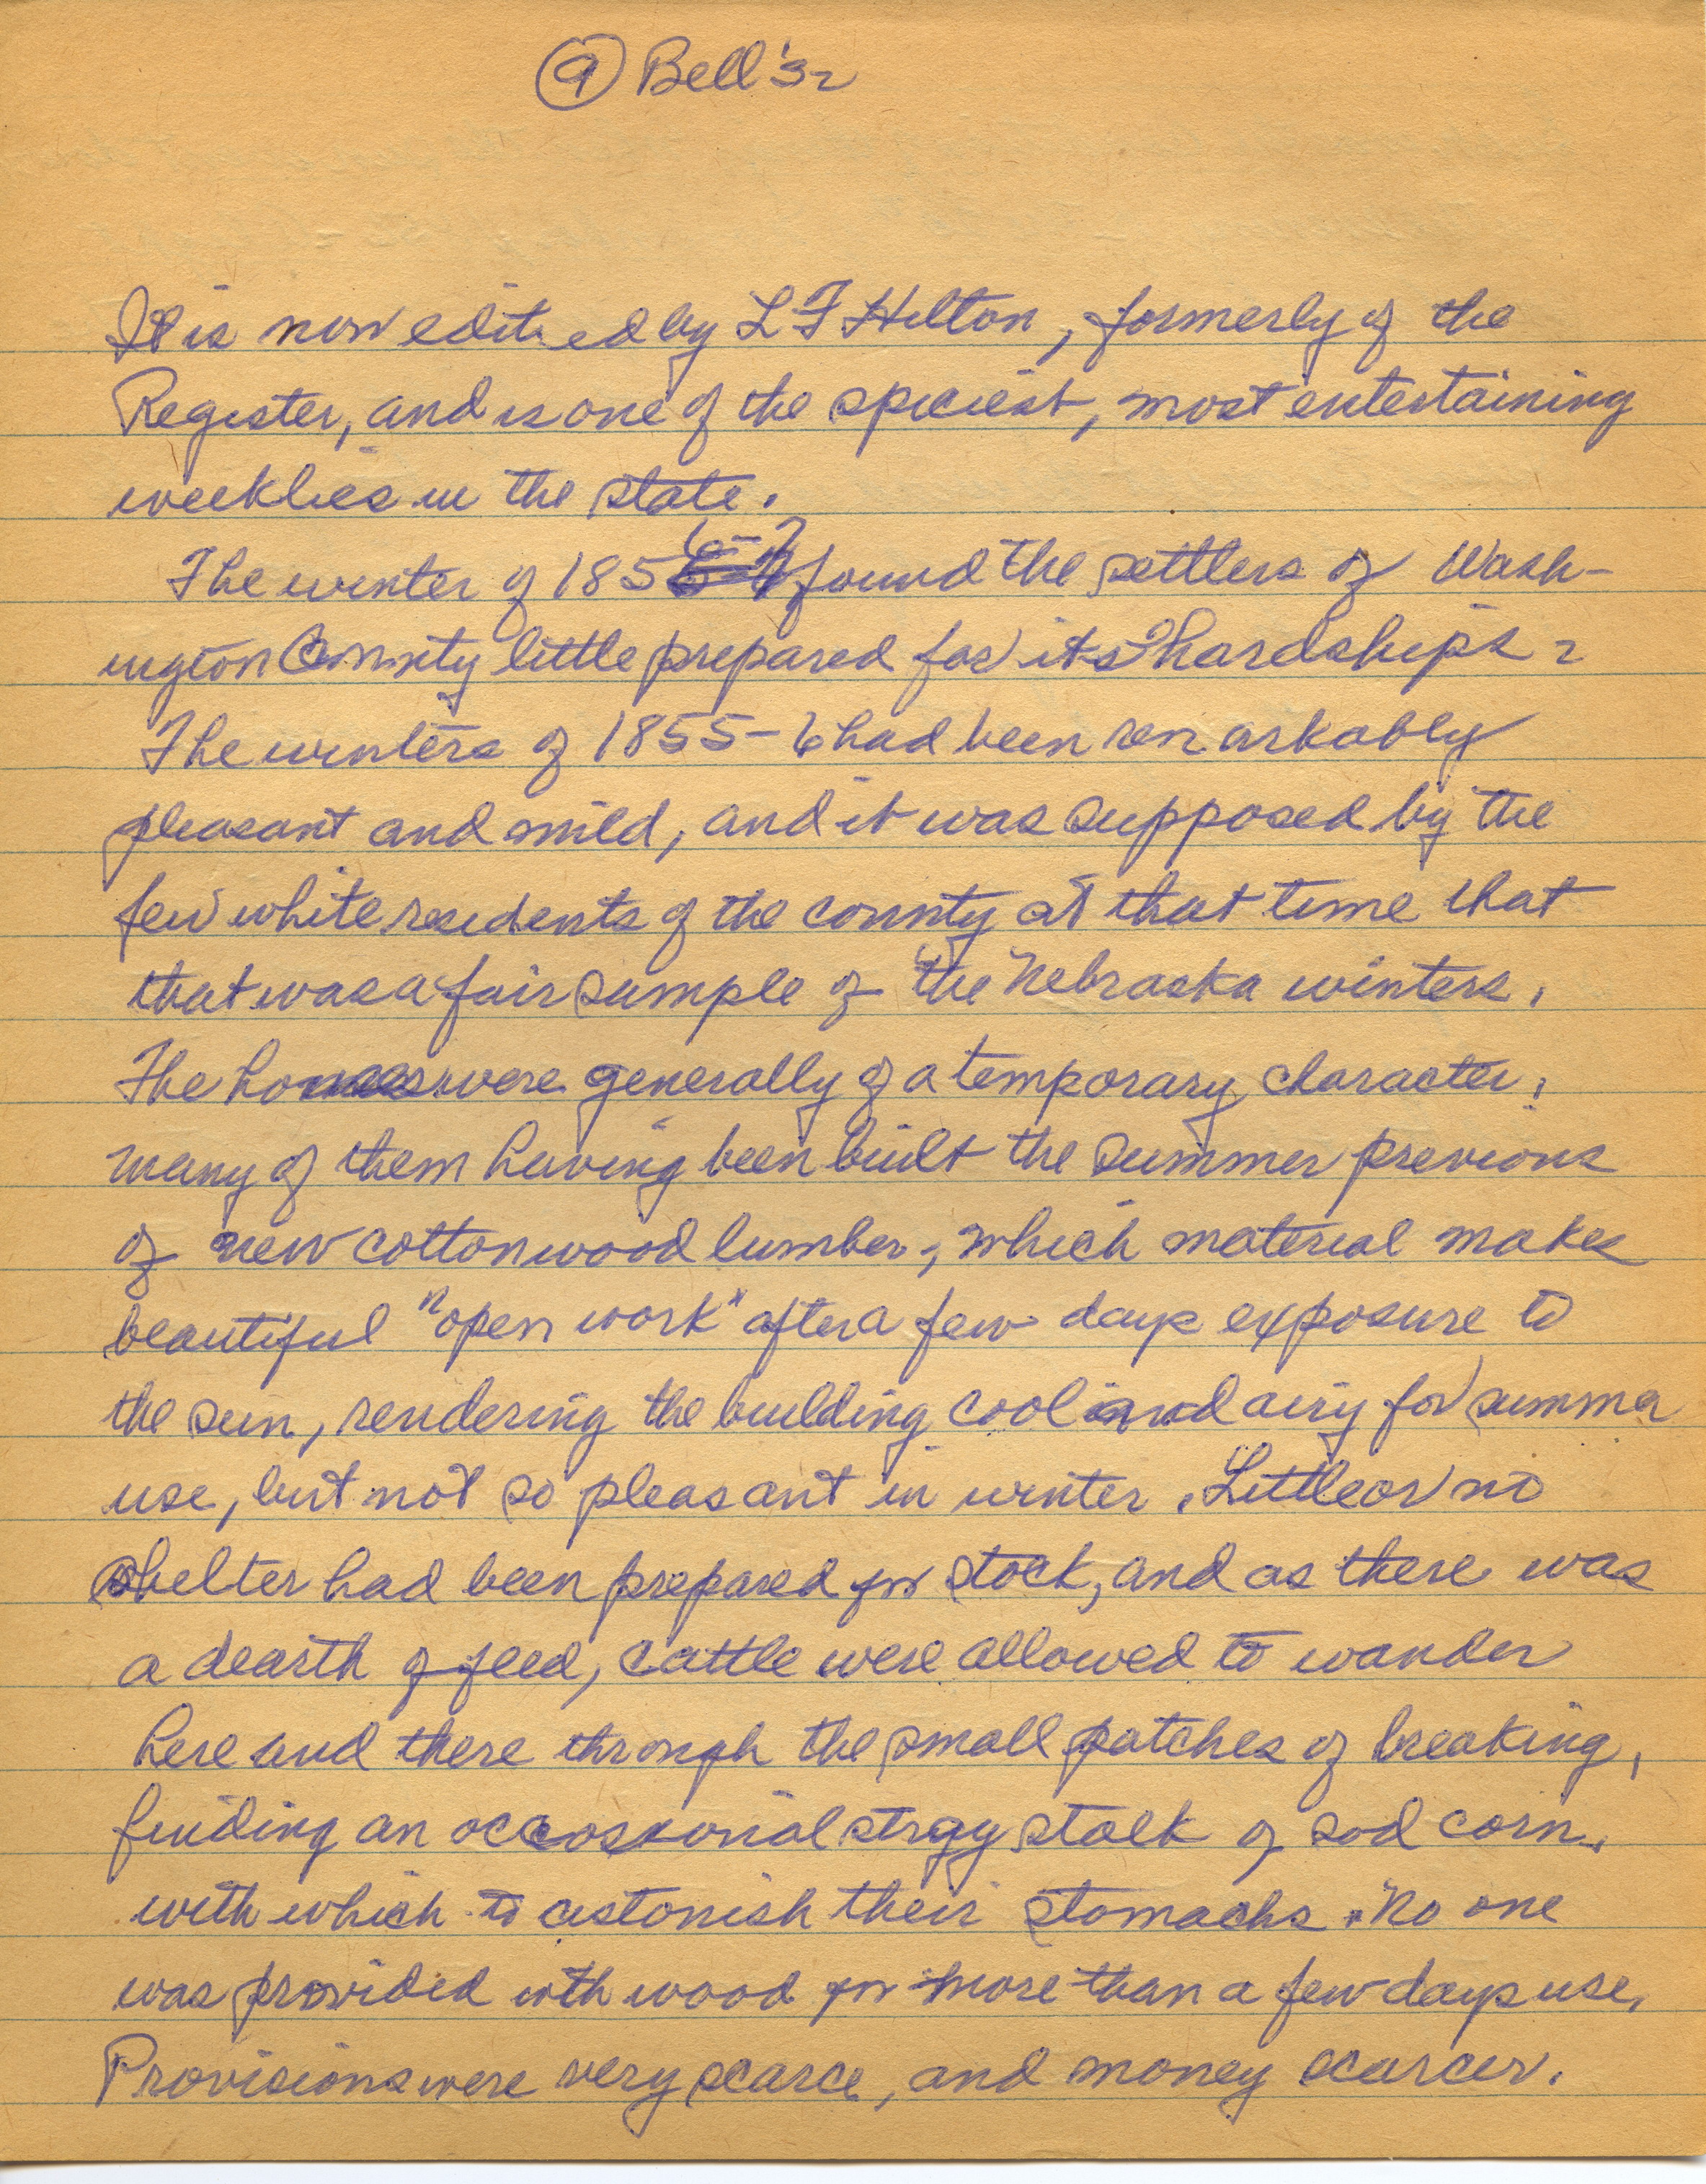 9 Bell's
It is now edited by L F Hilton, formerly of the
Register, and is one of the spiciest, most entertaining
weeklies in the state.
The winter of 1856-7 found the settlers of Wash-
ington County little prepared for its hardships.
The winters of 1855-6 had been remarkably
pleasant and mild, and it was supposed by the
few white residents of the county at that time that
that was a fair sample of the Nebraska winters.
The homes were generally of a temporary character,
many of them having been built the summer previous
of new cottonwood lumber, which material makes
beautiful "open work" after a few days exposure to
the sun, rendering the building cool and airy for summer
use, but not so pleasant in winter. Little or no
shelter had been prepared for stock, and as there was
a dearth of feed, cattle were allowed to wander
here and there through the small patches of breaking,
finding an occossional strgy stalk of sod corn,
with which to astonish their stomachs. No one
was provided with wood for more than a few days use.
Provisions were very scarce, and money scarcer.